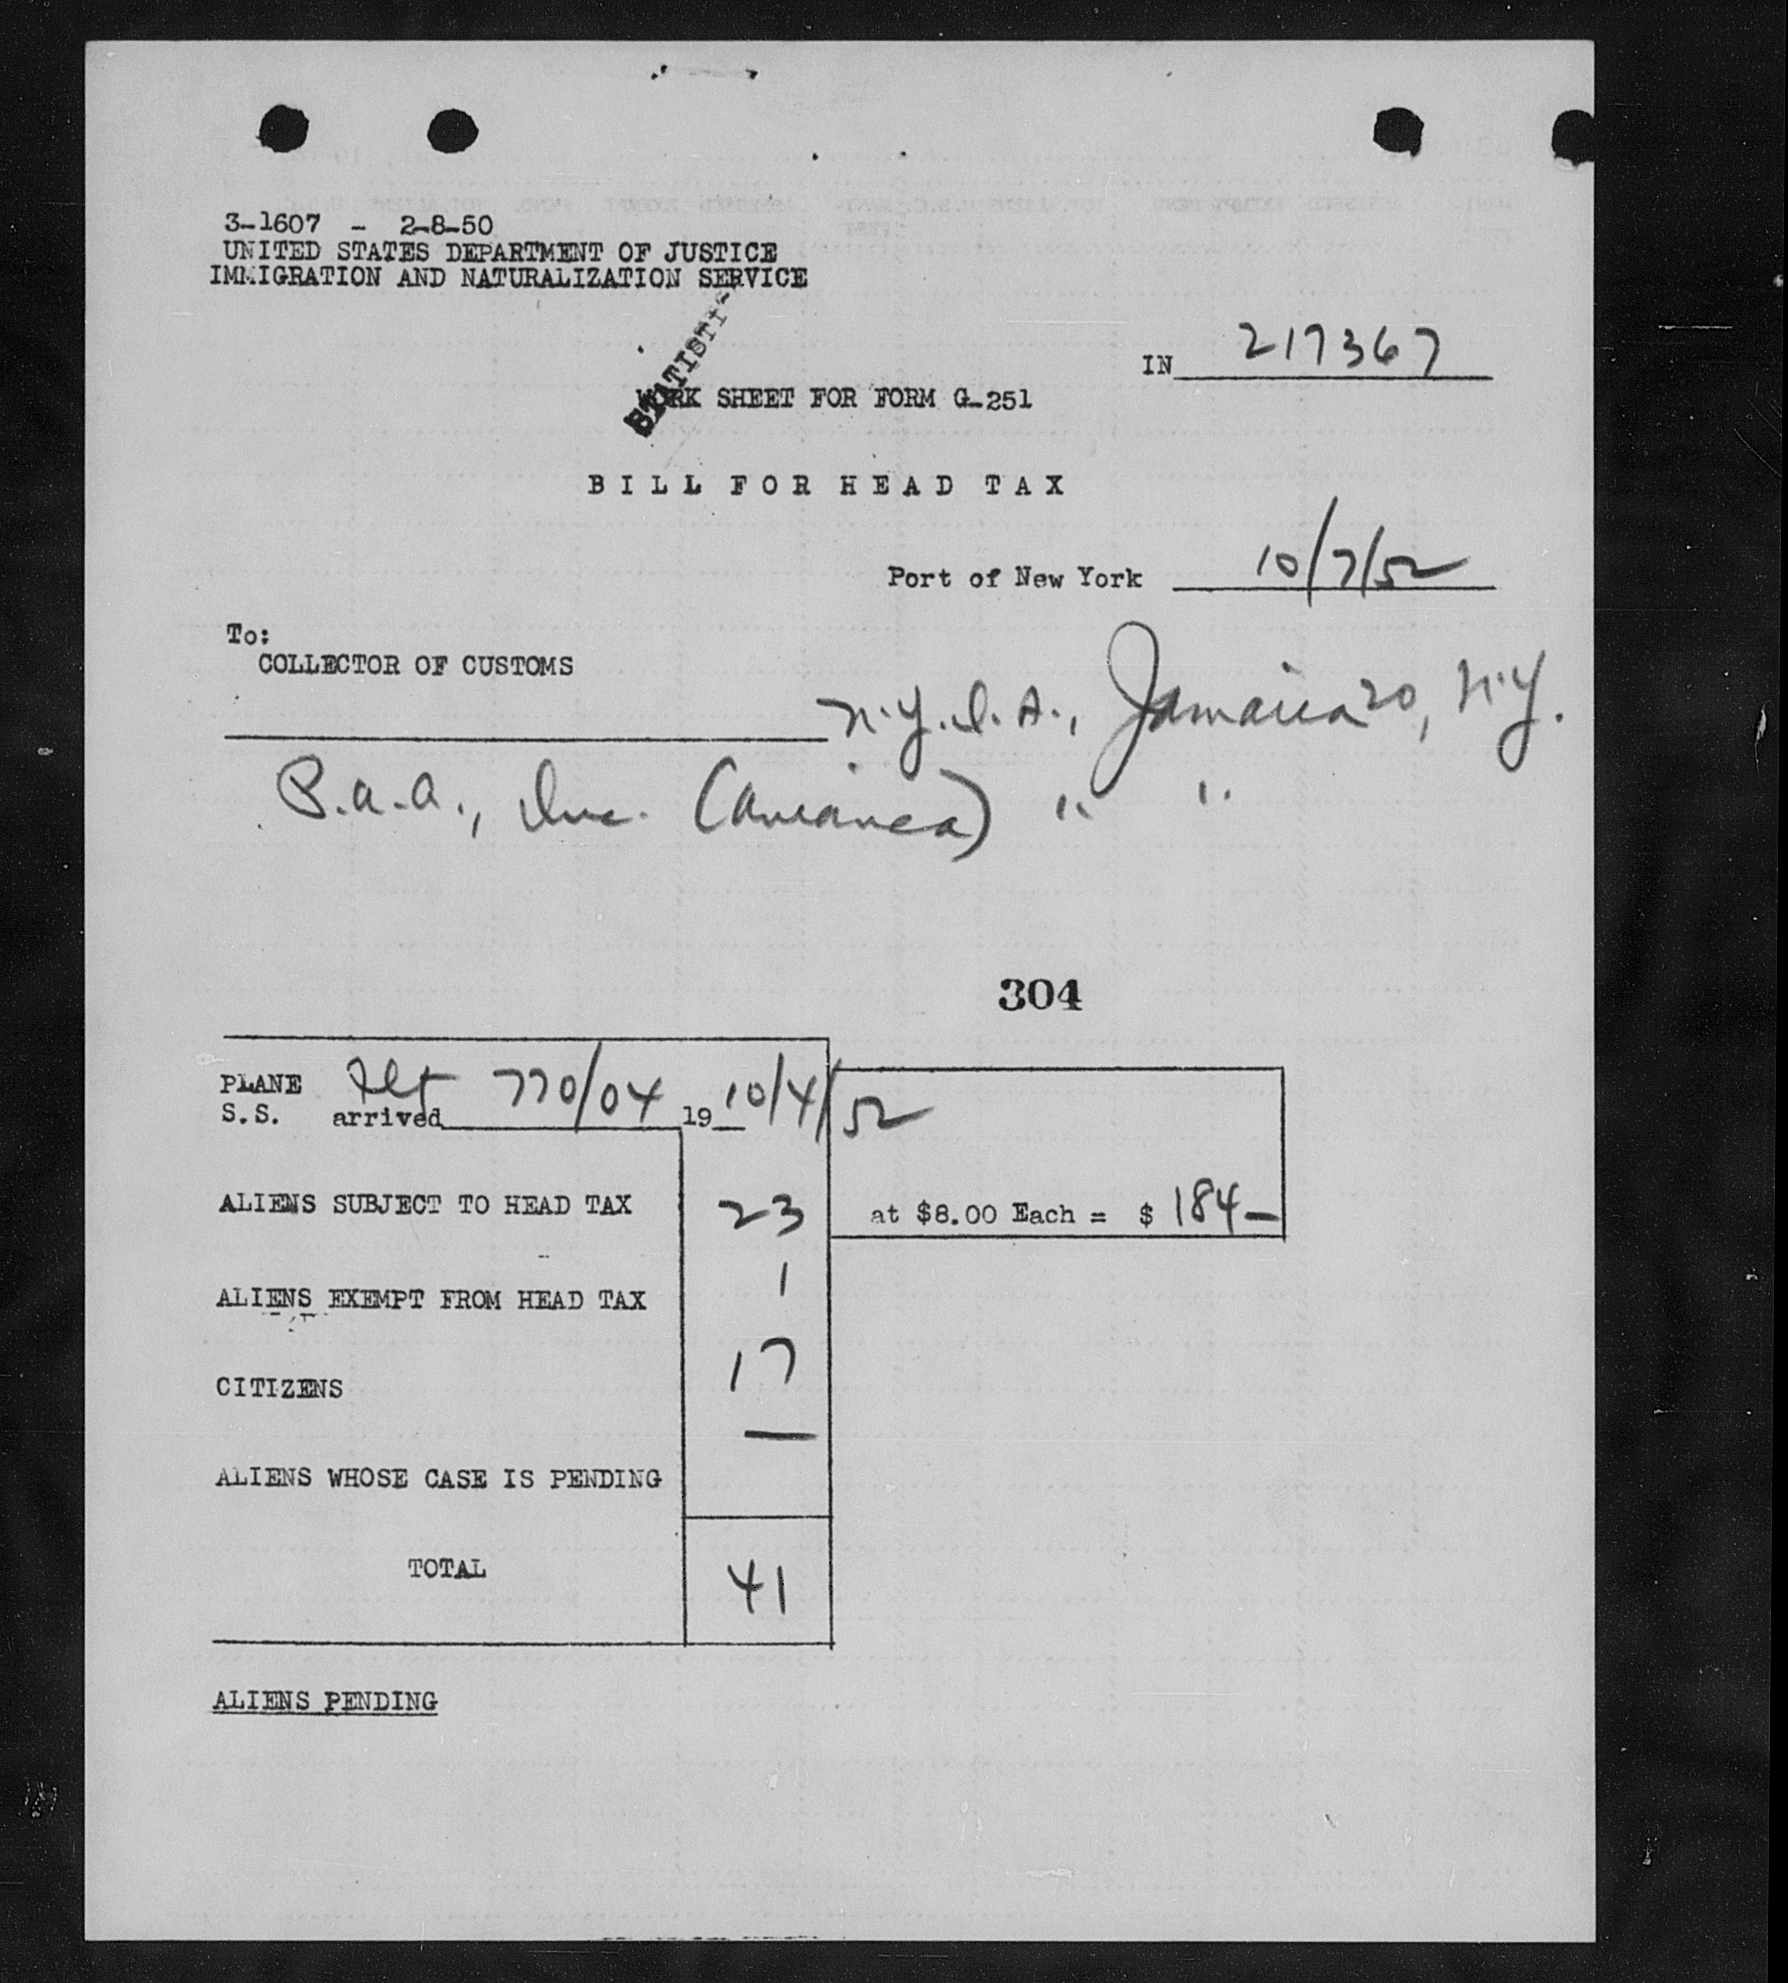 3-1607 - 2-8-50
UNITED STATES DEPARTMENT OF JUSTICE
IMMIGRATION AND NATURALIZATION SERVICE
IN 217367
WORK SHEET FOR FORM G-251
BILL FOR HEAD TAX
Port of New York 10/7/52
To:
COLLECTOR OF CUSTOMS
N.Y.I.A., Jamaica 20, N.Y.
P.a.a., Inc. " "
304
PLANE Flt 770/04 10/4/52
S.S. arrived 19
ALIENS SUBJECT TO HEAD TAX 23 at $8.00 Each = $ 184-
ALIENS EXEMPT FROM HEAD TAX 1
CITIZENS 17
—
ALIENS WHOSE CASE IS PENDING
TOTAL 41
ALIENS PENDING